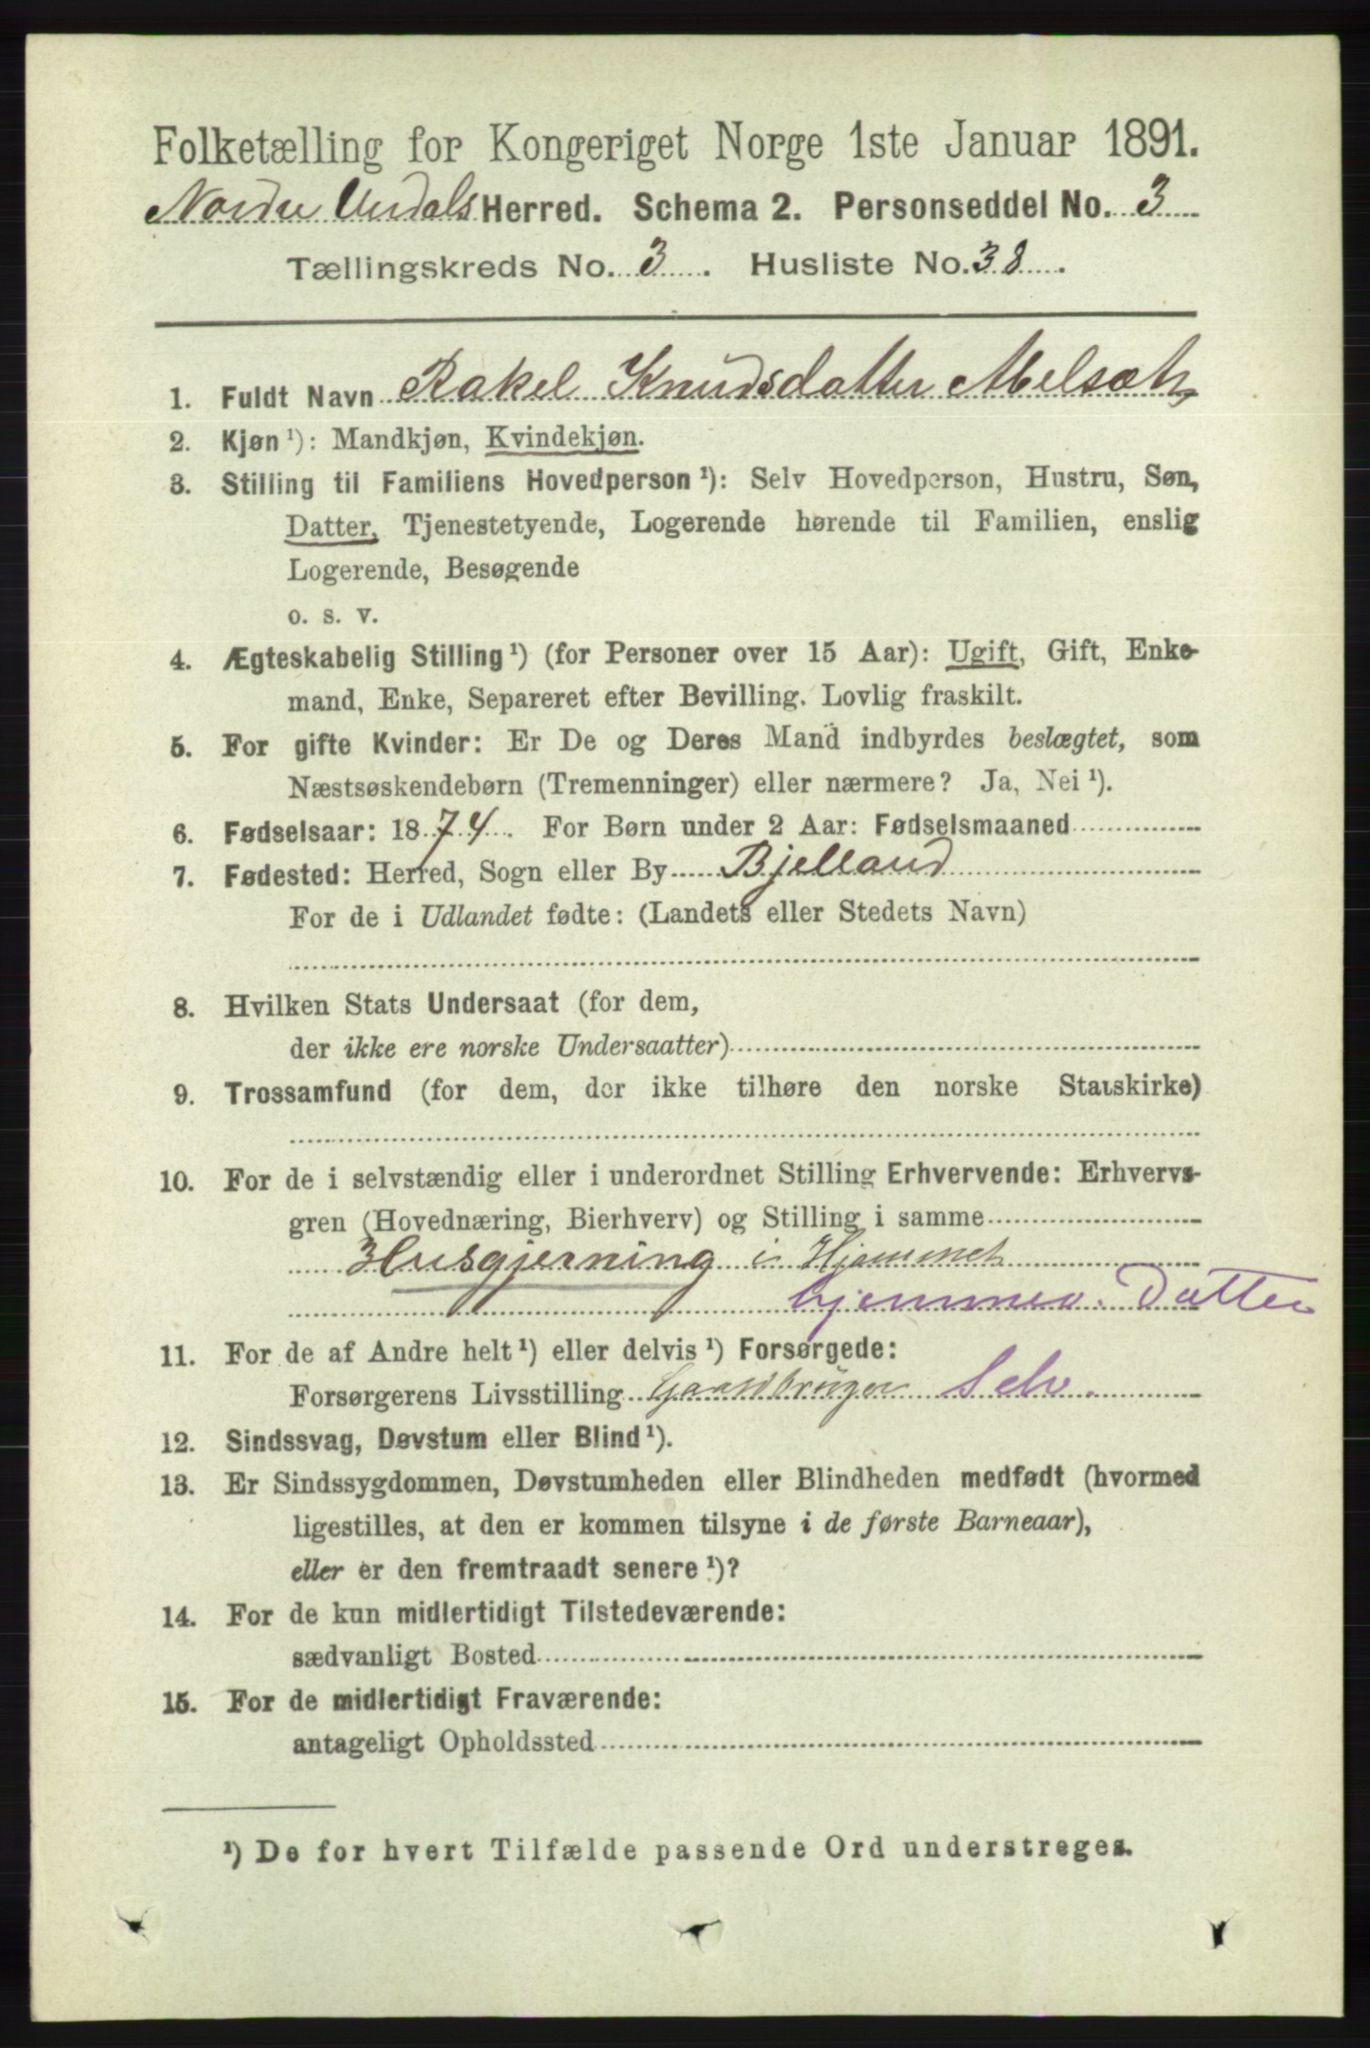 Folketælling for Kongeriget Norge 1ste Januar 1891.
Nordre Undals Herred. Schema 2. Personseddel No. 3
Tællingskreds No. 3. Husliste No. 38.
1. Fuldt Navn Rakel Knudsdatter Melsæth
2. Kjøn ¹): Mandkjøn, Kvindekjøn.
3. Stilling til Familiens Hovedperson ¹): Selv Hovedperson, Hustru, Søn,
Datter, Tjenestetyende, Logerende hørende til Familien, enslig
Logerende, Besøgende
o. s. v.
4. Ægteskabelig Stilling ¹) (for Personer over 15 Aar): Ugift, Gift, Enke-
mand, Enke, Separeret efter Bevilling. Lovlig fraskilt.
5. For gifte Kvinder: Er De og Deres Mand indbyrdes beslægtet, som
Næstsøskendebørn (Tremenninger) eller nærmere? Ja, Nei ¹).
6. Fødselsaar: 1874. For Børn under 2 Aar: Fødselsmaaned
7. Fødested: Herred, Sogn eller By Bjelland
For de i Udlandet fødte: (Landets eller Stedets Navn)
8. Hvilken Stats Undersaat (for dem,
der ikke ere norske Undersaatter)
9. Trossamfund (for dem, der ikke tilhøre den norske Statskirke)
10. For de i selvstændig eller i underordnet Stilling Erhvervende: Erhvervs-
gren (Hovednæring, Bierhverv) og Stilling i samme
Husgjerning i Hjemmet
hjemmev. Datter
11. For de af Andre helt ¹) eller delvis ¹) Forsørgede:
Forsørgerens Livsstilling Gaardbruger Selv.
12. Sindssvag, Døvstum eller Blind ¹).
13. Er Sindssygdommen, Døvstumheden eller Blindheden medfødt (hvormed
ligestilles, at den er kommen tilsyne i de første Barneaar),
eller er den fremtraadt senere ¹)?
14. For de kun midlertidigt Tilstedeværende:
sædvanligt Bosted
15. For de midlertidigt Fraværende:
antageligt Opholdssted
¹) De for hvert Tilfælde passende Ord understreges.